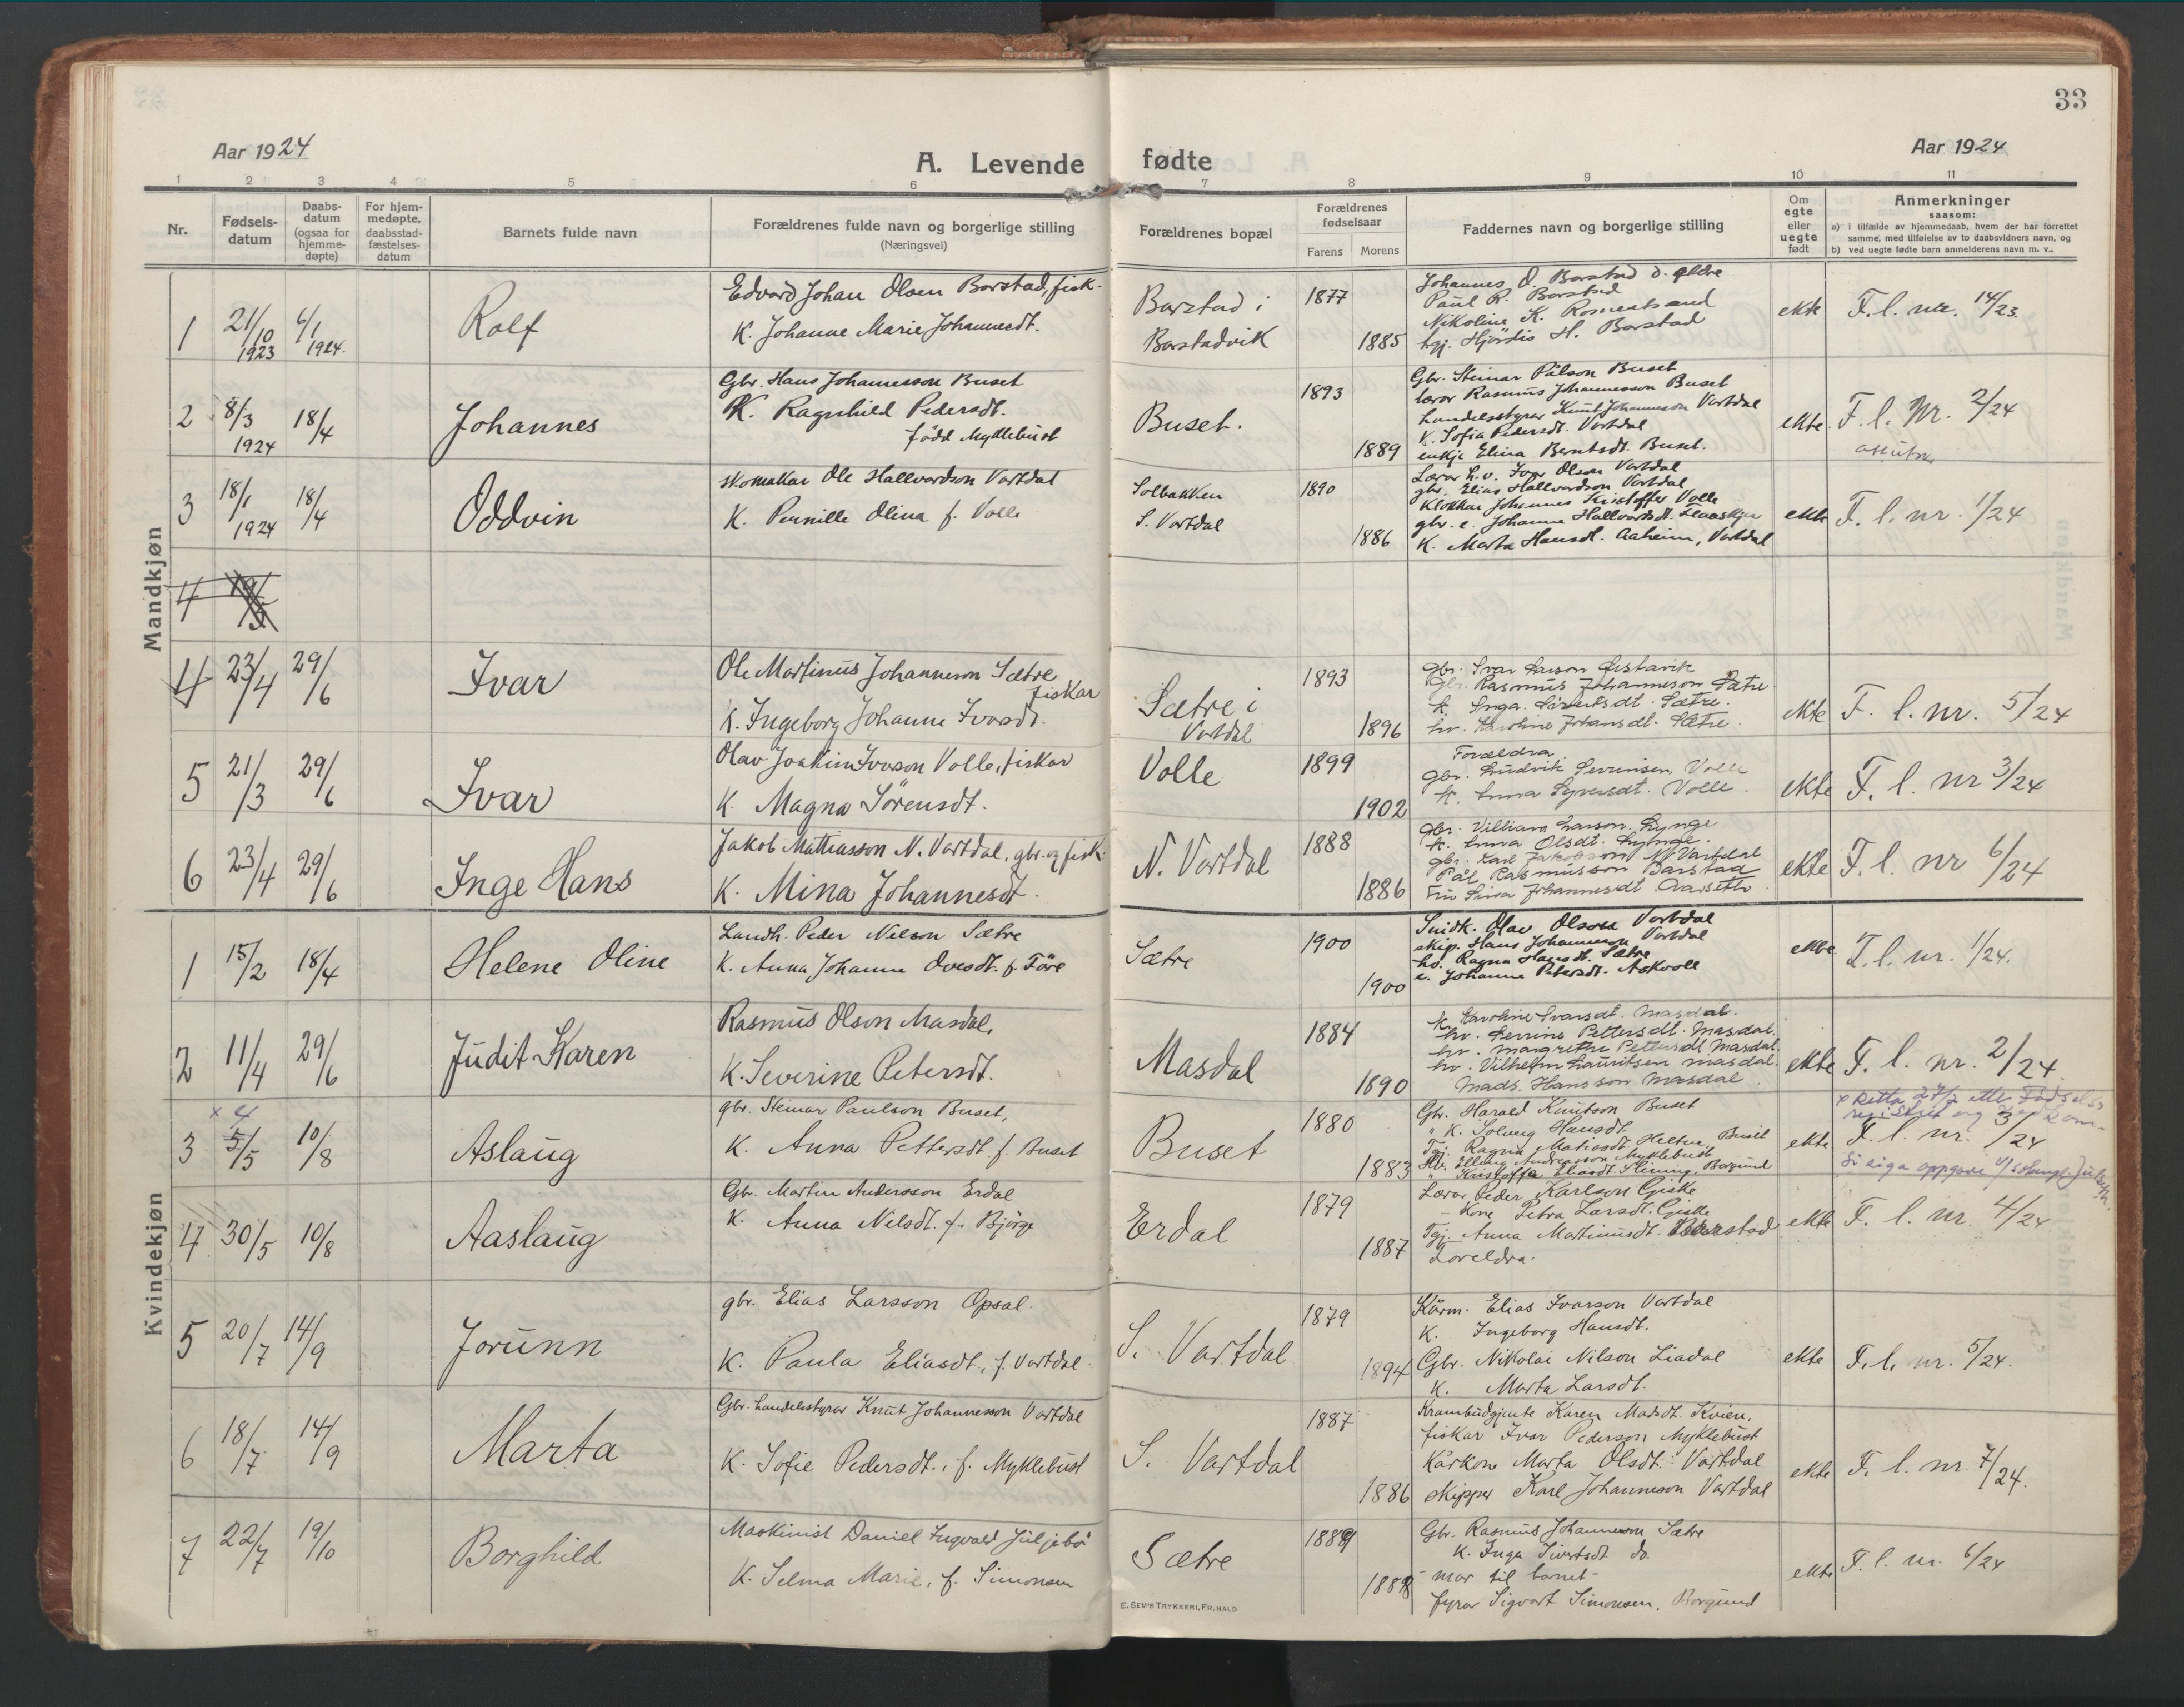 33
Aar 1924
A. Levende fødte
Aar 1924
1 2 3 4 5 6 7 8 9 10 11
Nr.
Fødsels-
datum
Daabs-
datum
(ogsaa for
hjemme-
døpte)
For hjem-
medøpte,
daabsstad-
fæstelses-
datum
Barnets fulde navn
Forældrenes fulde navn og borgerlige stilling
(Næringsvei)
Forældrenes bopæl
Forældrenes
fødselsaar
Farens Morens
Faddernes navn og borgerlige stilling
Om
egte
eller
uegte
født
Anmerkninger
saasom:
a) i tilfælde av hjemmedaab, hvem der har forrettet
samme, med tilføielse av to daabsvidners navn, og
b) ved uegte fødte barn anmelderens navn m. v.
Mandkjøn
1 21/10 1923 6/1 1924. Rolf
Edvard Johan Olsen Barstad, fisk.
K. Johanne Marie Johannesdt.
Barstad i
Barstadvik
1877 1885
Johannes O. Barstad d. eldre
Paul R. Barstad
Nikoline K.
tgj. Hjördis H. Barstad
ekte F. l. nr. 14/23.
2 8/3 1924 18/4 Johannes
Gbr. Hans Johannesson Buset
K. Ragnhild Pedersdt.
född Myklebust
Buset.
1893 1889
Gbr. Steinar Pålson Buset
lærar Rasmus Johannesson Buset
handelsstyrar Knut Johannesson Vartdal
K. Sofia Pedersdt. Vartdal
enkje Elina Berntsdt. Buset.
ekte. F. l. Nr. 2/24
3 18/1 1924 18/4 Oddvin
skomakar Ole Hallvardson Vartdal
K. Pernille Olina f. Volle
Solbakken
S. Vartdal
1890 1886
Lærar h.v. Ivar Olson Vartdal
gbr. Elias Hallvardson Vartdal
Klokkar Johannes Kristoffer Volle
gbr. e. Johanne Hallvardsdt. Flaaskjer
K. Marta Hansdt. Aaheim, Vartdal
ekte F. l. nr. 1/24
4 19/5
4 23/4 29/6 Ivar
Ole Martinus Johanneson Sætre
fiskar
K. Ingeborg Johanne Ivarsdt.
Sætre i
Vartdal
1893 1896
gbr. Ivar Larson Ørstavik
Gbr. Rasmus Johanneson Sætre.
K. Inga Sivertsdt. Sætre.
hv. Karoline Johansdt. Sætre.
ekte F. l. nr. 5/24
5 21/3 29/6 Ivar
Olav Joakim Ivarson Volle, fiskar
K. Magna Sörensdt.
Volle
1899 1902
Foreldra
gbr. Ludvik Severinsen Volle
K. Anna Syversdt. Volle.
ekte F. l. nr 3/24
6 23/4 29/6 Inge Hans
Jakob Mattiasson N. Vartdal, gbr. og fisk.
K. Mina Johannesdt.
N. Vartdal
1888 1886
gbr. Villiam Larson Lynge
K. Anna Olsdt. Lynge.
gbr. Karl Jakobson N. Vartdal
Pål Rasmusson Barstad
Johannesdt. Aarseth.
ekte F. l. nr 6/24
Kvindekjøn
1 15/2 18/4 Helene Oline
Landh. Peder Nilson Sætre
K. Anna Johanne Ovesdt. f. Före
Sætre
1900 1900
Snidk. Olav Olsson Vartdal
skip. Hans Johannson Vartdal
hv. Ragna Hansdt. Sætre
e. Johanne Petersdt. Askvoll
ekte F. l. nr. 1/24.
2 11/4 29/6 Judit Karen
Rasmus Olson Masdal,
K. Severine Petersdt.
Masdal
1884 1890
K. Karoline Ivarsdt. Masdal.
hv. Perrine Pettersdt. Masdal.
hv. Margrethe Pettersdt. Masdal.
hv. Vilhelm Lauritsen Masdal.
Mads Hansson Masdal.
ekte F. l. nr. 2/24.
3 x 4 5/5 10/8 Aslaug
gbr. Steinar Paulson Buset,
K. Anna Pettersdt. f. Buset
Buset
1880 1883
Gbr. Harald Knutson Buset
" K. Solveig Hansdt.
Tgj. Ragna Matiasdt. Heltne, Buset
Gbr. Elling Andreasson Myklebust
" Kristoffa Eliasdt. Slinning, Borgund
ekte
x Retta 27/2 etter Fødsels-
registret og
F. l. nr. 3/24
Si eiga oppgave
4 30/5 10/8 Aaslaug
Gbr. Martin Andersson Erdal
K. Anna Nilsdt. f. Björge
Erdal
1879 1887
Lærar Peder Karlson Giske
— Kone Petra Larsdt. Giske
Tgj. Anna Martinusdt. Barstad
Foreldra.
ekte F. l. nr. 4/24
5 20/7 14/9 Jorunn
gbr. Elias Larsson Opsal.
K. Paula Eliasdt., f. Vartdal
S. Vartdal
1879 1894
Kårm. Elias Ivarson Vartdal
K. Ingeborg Hansdt.
Gbr. Nikolai Nilson Liadal
K. Marta Larsdt.
ekte F. l. nr. 5/24.
6 18/7 14/9 Marta
Gbr. handelsstyrar Knut Johannesson Vartdal
K. Sofie Pedersdt., f. Myklebust
S. Vartdal
1887 1886
Krambudgjente Karen Madsdt. Kvien,
fiskar Ivar Pederson Myklebust
Kårkone Marta Olsdt. Vartdal
skipper Karl Johanneson Vartdal
ekte F. l. nr 7/24.
7 22/7 19/10 Borghild
Maskinist Daniel Ingvald Juljebö
K. Selma Marie, f. Simonsen
Sætre
1889 1888
Gbr. Rasmus Johannesson Sætre
K. Inga Sivertsdt do.
- mor til barnet -
fyrar Sigvart Simonsen, Borgund
ekte F. l. nr. 6/24
E. SEM'S TRYKKERI, FR.HALD